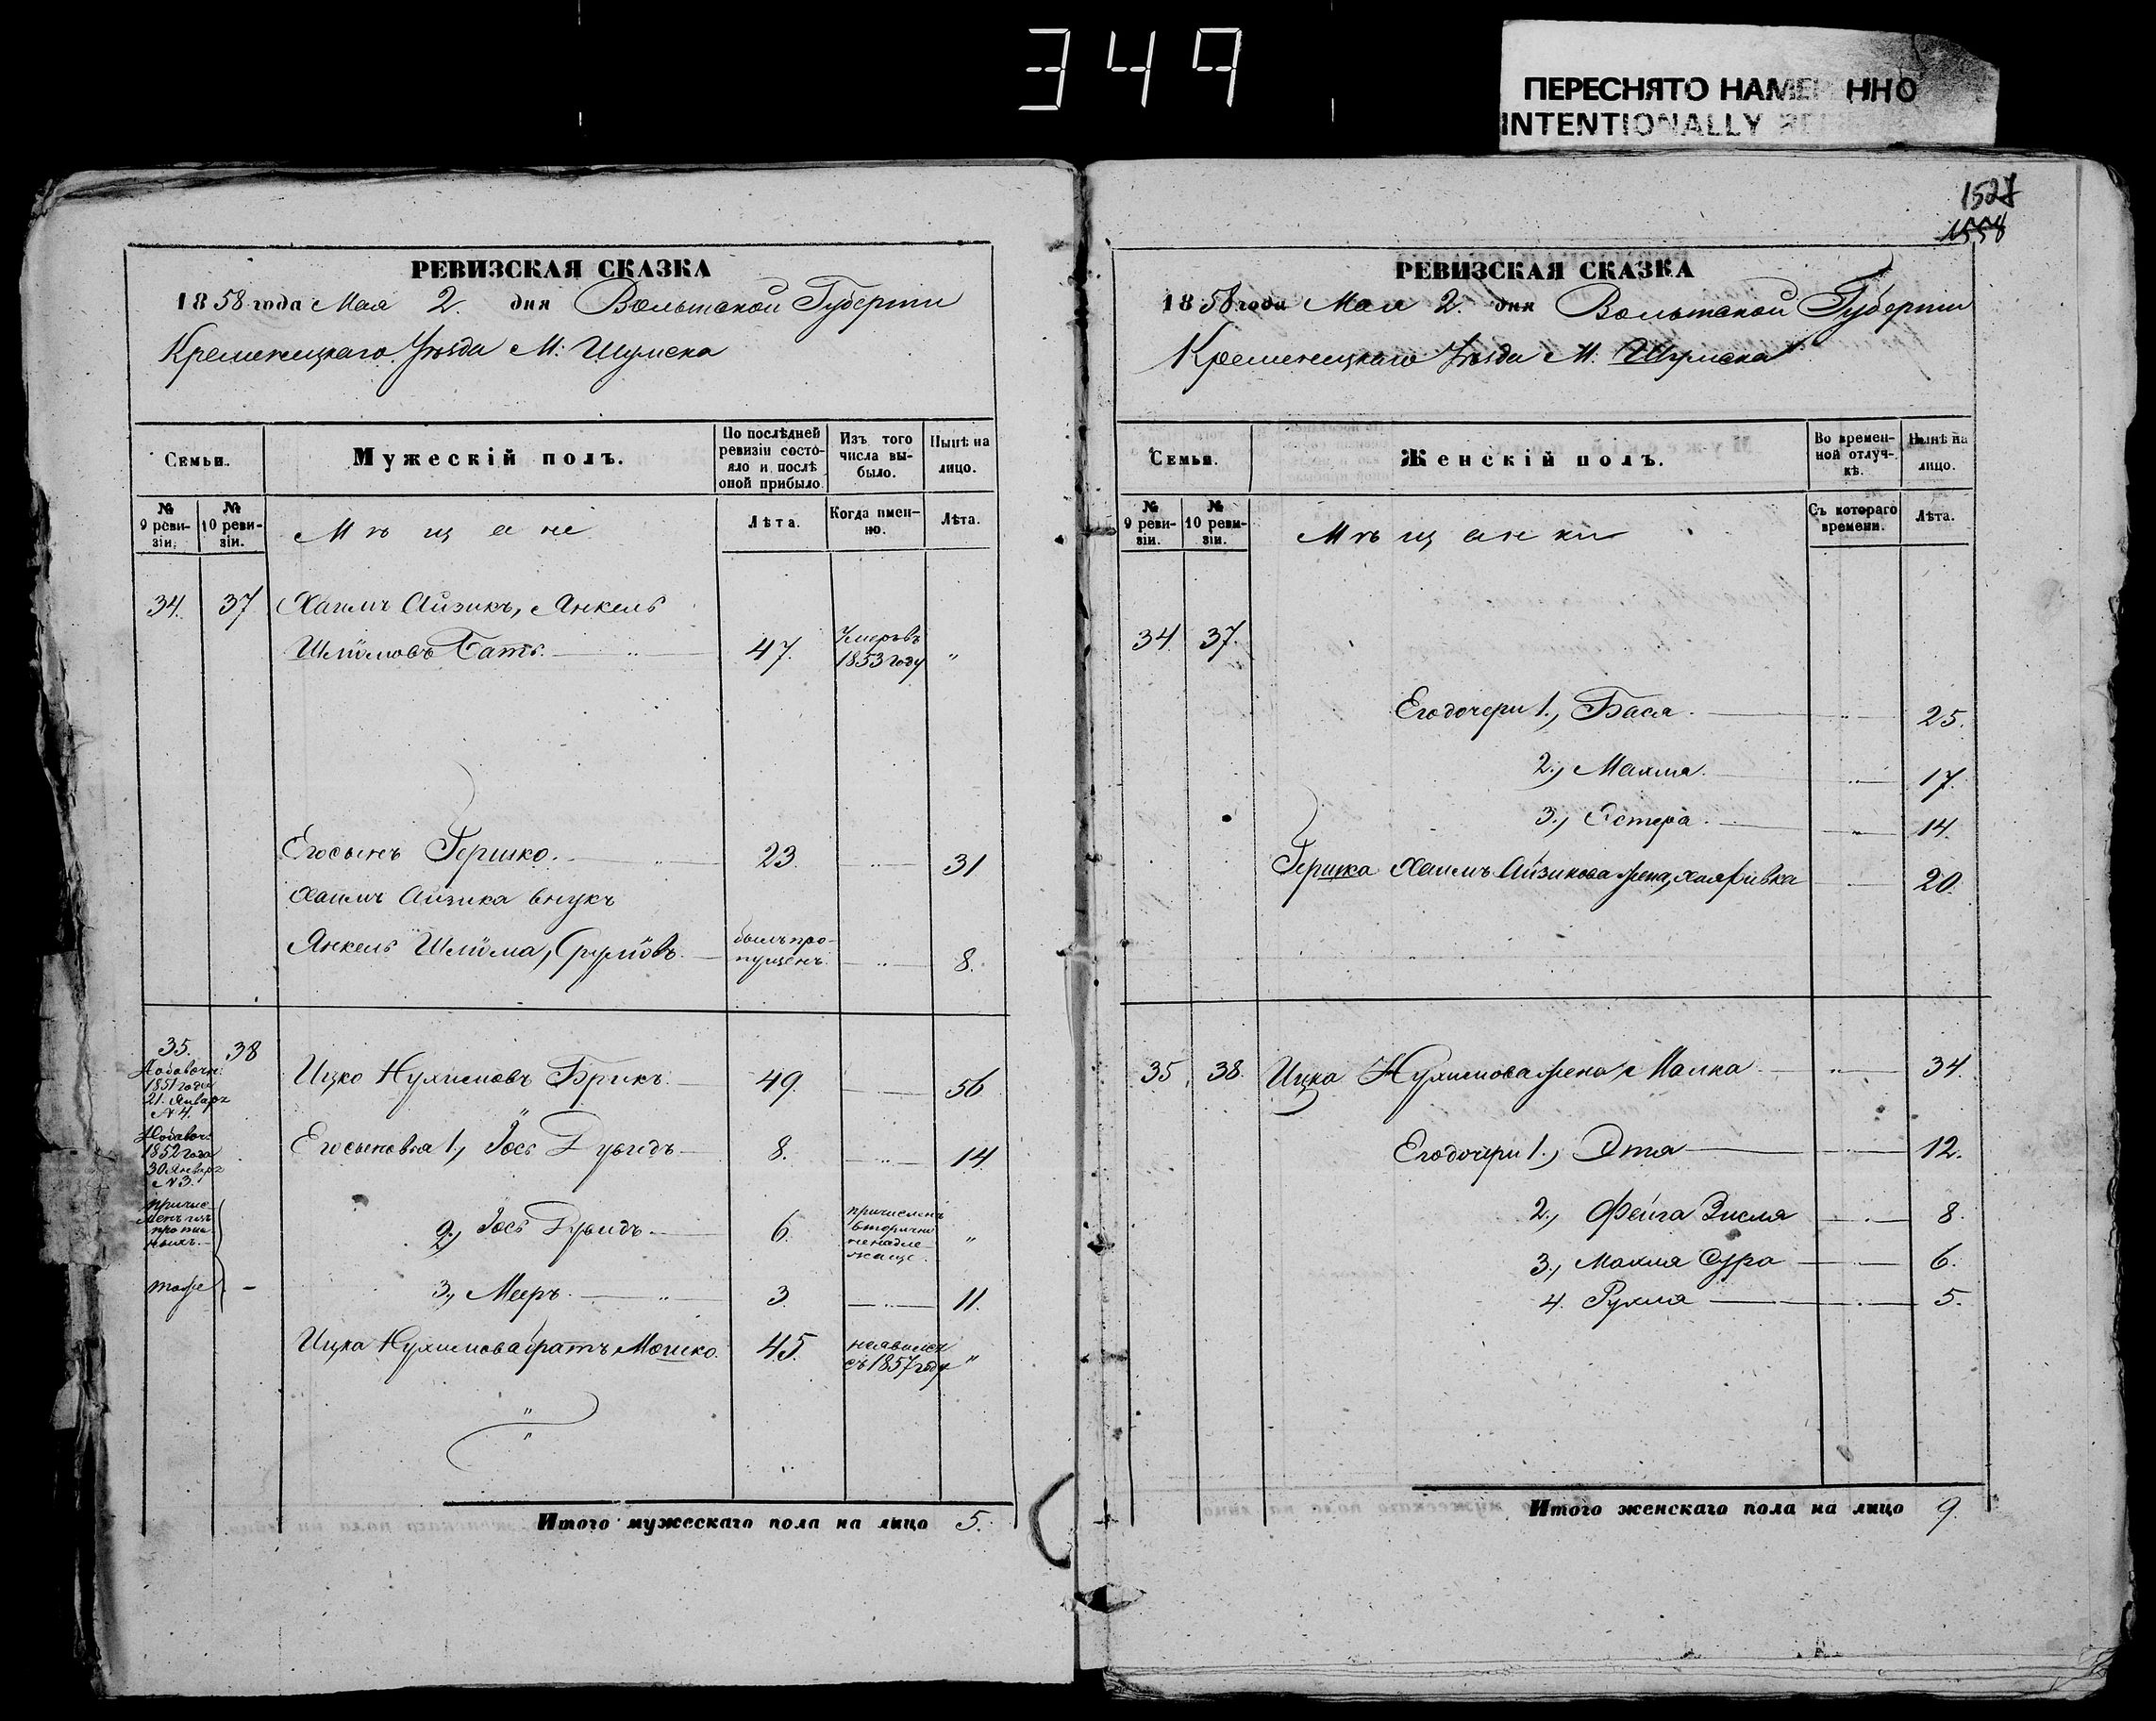 349
ПЕРЕСНЯТО НАМЕ ННО
INTENTIONALLY
1527
1558
РЕВИЗСКАЯ СКАЗКА
1858 года Мая 2. дня Волынской Губерніи
Кременецкаго Уѣзда М: Шумска
Семьи.
Мужескій полъ.
По послѣдней ревизіи состояло и послѣ оной прибыло.
Изъ того числа выбыло.
Нынѣ на лицо.
№ 9 ревизіи.
№ 10 ревизіи.
Мѣщане
Лѣта.
Когда именно.
Лѣта.
34. 37. Хаимъ Айзикъ, Янкель
Шліомовъ 47. Умеръ въ 1853 году "
Его сынъ Гершко. 23. 31
Хаимъ Айзика внукъ
Янкель Шліома, Сруліовъ былъ пропущенъ 8.
35. 38 Ицко Нухимовъ Брикъ 49. 56
Добавочн: 1851 года 21. Января №4.
Добавоч: 1852 года 30 Января №3.
Его сыновья 1., Іось Дувидъ 8. 14
причисленъ изъ прописныхъ.
2., Іось Дувидъ 6. причисленъ вторично ненадлежаще "
тоже - 3., Мееръ 3. 11.
Ицка Нухимова братъ Мошко. 45. неявился съ 1857 году "
Итого мужескаго пола на лицо 5.
РЕВИЗСКАЯ СКАЗКА
1858 года Мая 2. дня Волынской Губерніи
Кременецкаго Уѣзда М: Шумска
Семьи.
Женскій полъ.
Во временной отлучкѣ.
Нынѣ на лицо.
№ 9 ревизіи.
№ 10 ревизіи.
Мѣщанки
Съ котораго времени.
Лѣта.
34 37.
Его дочери 1., Бася. 25.
2., Махля. 17.
3., Эстера. 14.
Гершка Хаимъ Айзикова жена, Хая Ривка 20.
35 38. Ицка Нухимова жена Малка 34.
Его дочери 1., Этя 12.
2., Фейга Зисля 8.
3., Махля Сура 6.
4. Рухля 5.
Итого женскаго пола на лицо 9